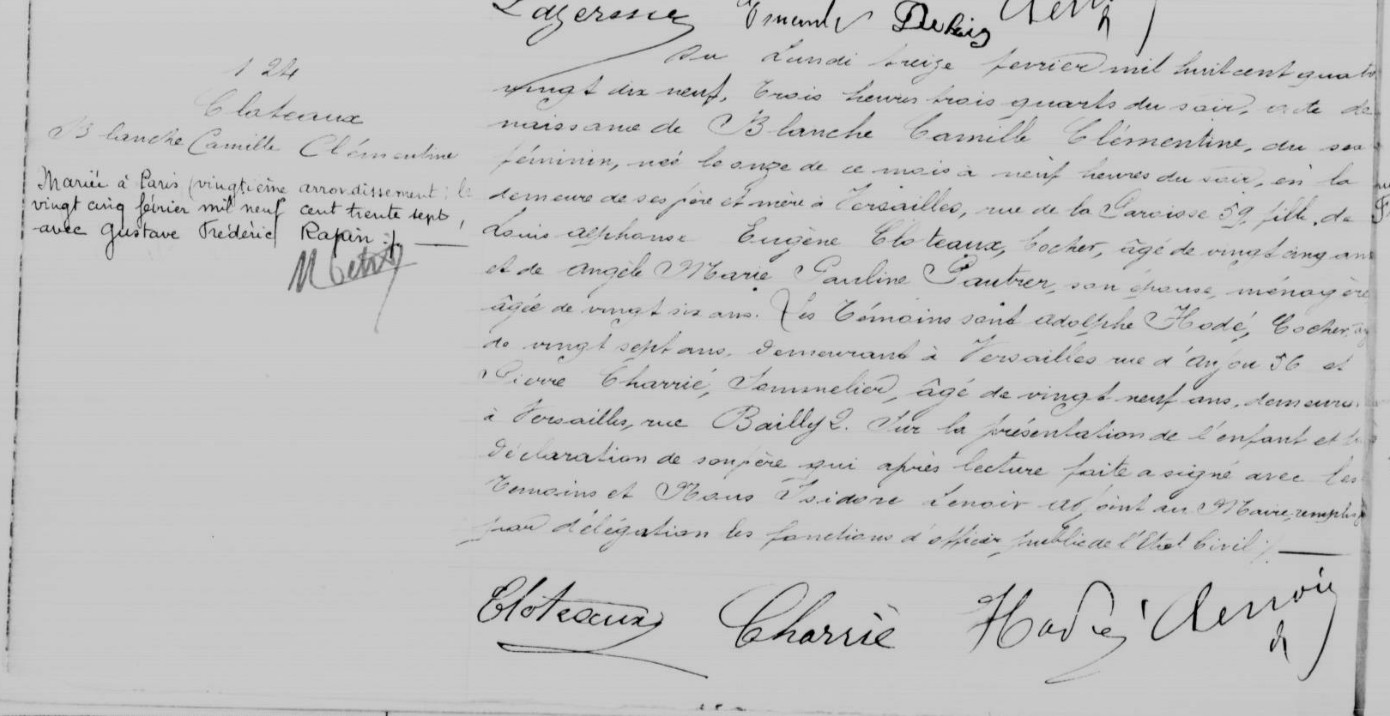 Du Lundi treize fevrier mil huit cent quatre
vingt dix neuf, Trois heures trois quarts du soir, acte de
naissance de Blanche Camille Clémentine, du sexe
féminin, née le onze de ce mois à neuf heures du soir, en la
demeure de ses père et mère à Versailles, rue de la Paroisse 59, fille de
Louis alphonse Eugène Cloteaux, Cocher, âgé de vingt cinq ans
et de Angèle Marie Pauline Pautrer, son épouse, ménagère
âgée de vingt six ans. Les Témoins sont Adolphe Hodé, Cocher, âgé
de vingt sept ans, demeurant à Versailles rue d'Anjou 56 et
Pierre Charrié, Sommelier, âgé de vingt neuf ans, demeurant
à Versailles, rue Bailly 2. Sur la présentation de l'enfant et la
Déclaration de son père qui après lecture faite a signé avec les
Témoins et Nous Isidore Lenoir adjoint au Maire, remplissant
par délégation les fonctions d'officier public de l'Etat Civil ./.
Cloteaux Charrié Hodé Lenoir
124
Cloteaux
Blanche Camille Clémentine
Mariée à Paris (vingtième arrondissement) le
vingt cinq février mil neuf cent trente sept,
avec Gustave Frédéric Rapin ./.